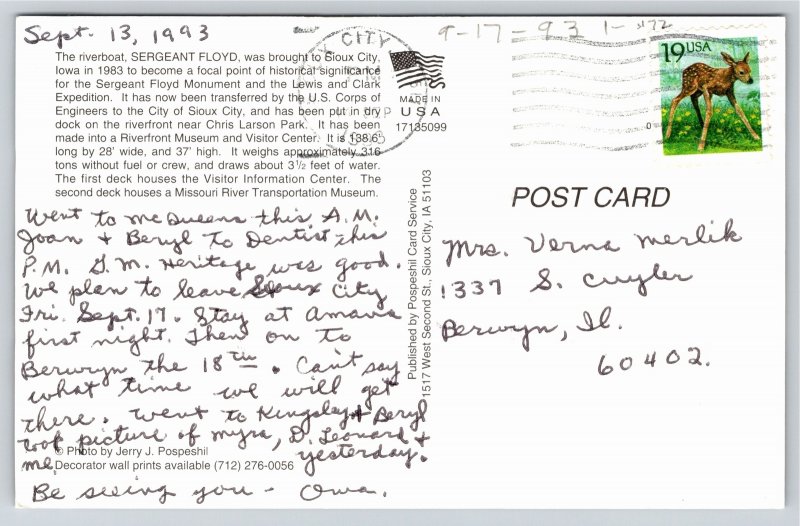 Sept. 13, 1993
9-17-93
The riverboat, SERGEANT FLOYD, was brought to Sioux City,
Iowa in 1983 to become a focal point of historical significance
for the Sergeant Floyd Monument and the Lewis and Clark
Expedition. It has now been transferred by the U.S. Corps of
Engineers to the City of Sioux City, and has been put in dry
dock on the riverfront near Chris Larson Park. It has been
made into a Riverfront Museum and Visitor Center. It is 138.6'
long by 28' wide, and 37' high. It weighs approximately 316
tons without fuel or crew, and draws about 3½ feet of water.
The first deck houses the Visitor Information Center. The
second deck houses a Missouri River Transportation Museum.
CITY
MADE IN
USA
17135099
19 USA
Went to McQueens this A.M.
Joan + Beryl to Dentist this
P.M. G.M. Heritage was good.
We plan to leave Sioux City
Fri. Sept. 17. Stay at Amana
first night. Then on to
Berwyn the 18th. Can't say
what time we will get
there. Went to Kingsley + Beryl
took picture of Myra, D. Leonard +
me yesterday.
© Photo by Jerry J. Pospeshil
Decorator wall prints available (712) 276-0056
Be seeing you - Owa.
Published by Pospeshil Card Service
1517 West Second St., Sioux City, IA 51103
POST CARD
Mrs. Verna Merlik
1337 S. Cuyler
Berwyn, Il.
60402.